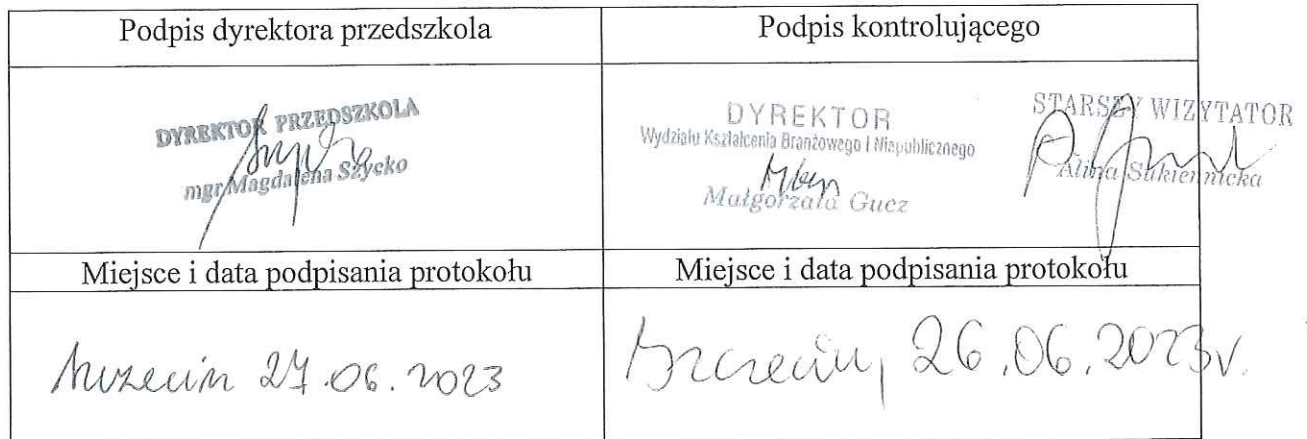 Podpis dyrektora przedszkola
Podpis kontrolującego
DYREKTOR PRZEDSZKOLA
mgr Magdalena Szycko
DYREKTOR
Wydziału Kształcenia Branżowego i Niepublicznego
Małgorzata Gucz
STARSZY WIZYTATOR
Alina Sukiennicka
Miejsce i data podpisania protokołu
Miejsce i data podpisania protokołu
Szczecin 27.06.2023
Szczecin, 26.06.2023r.